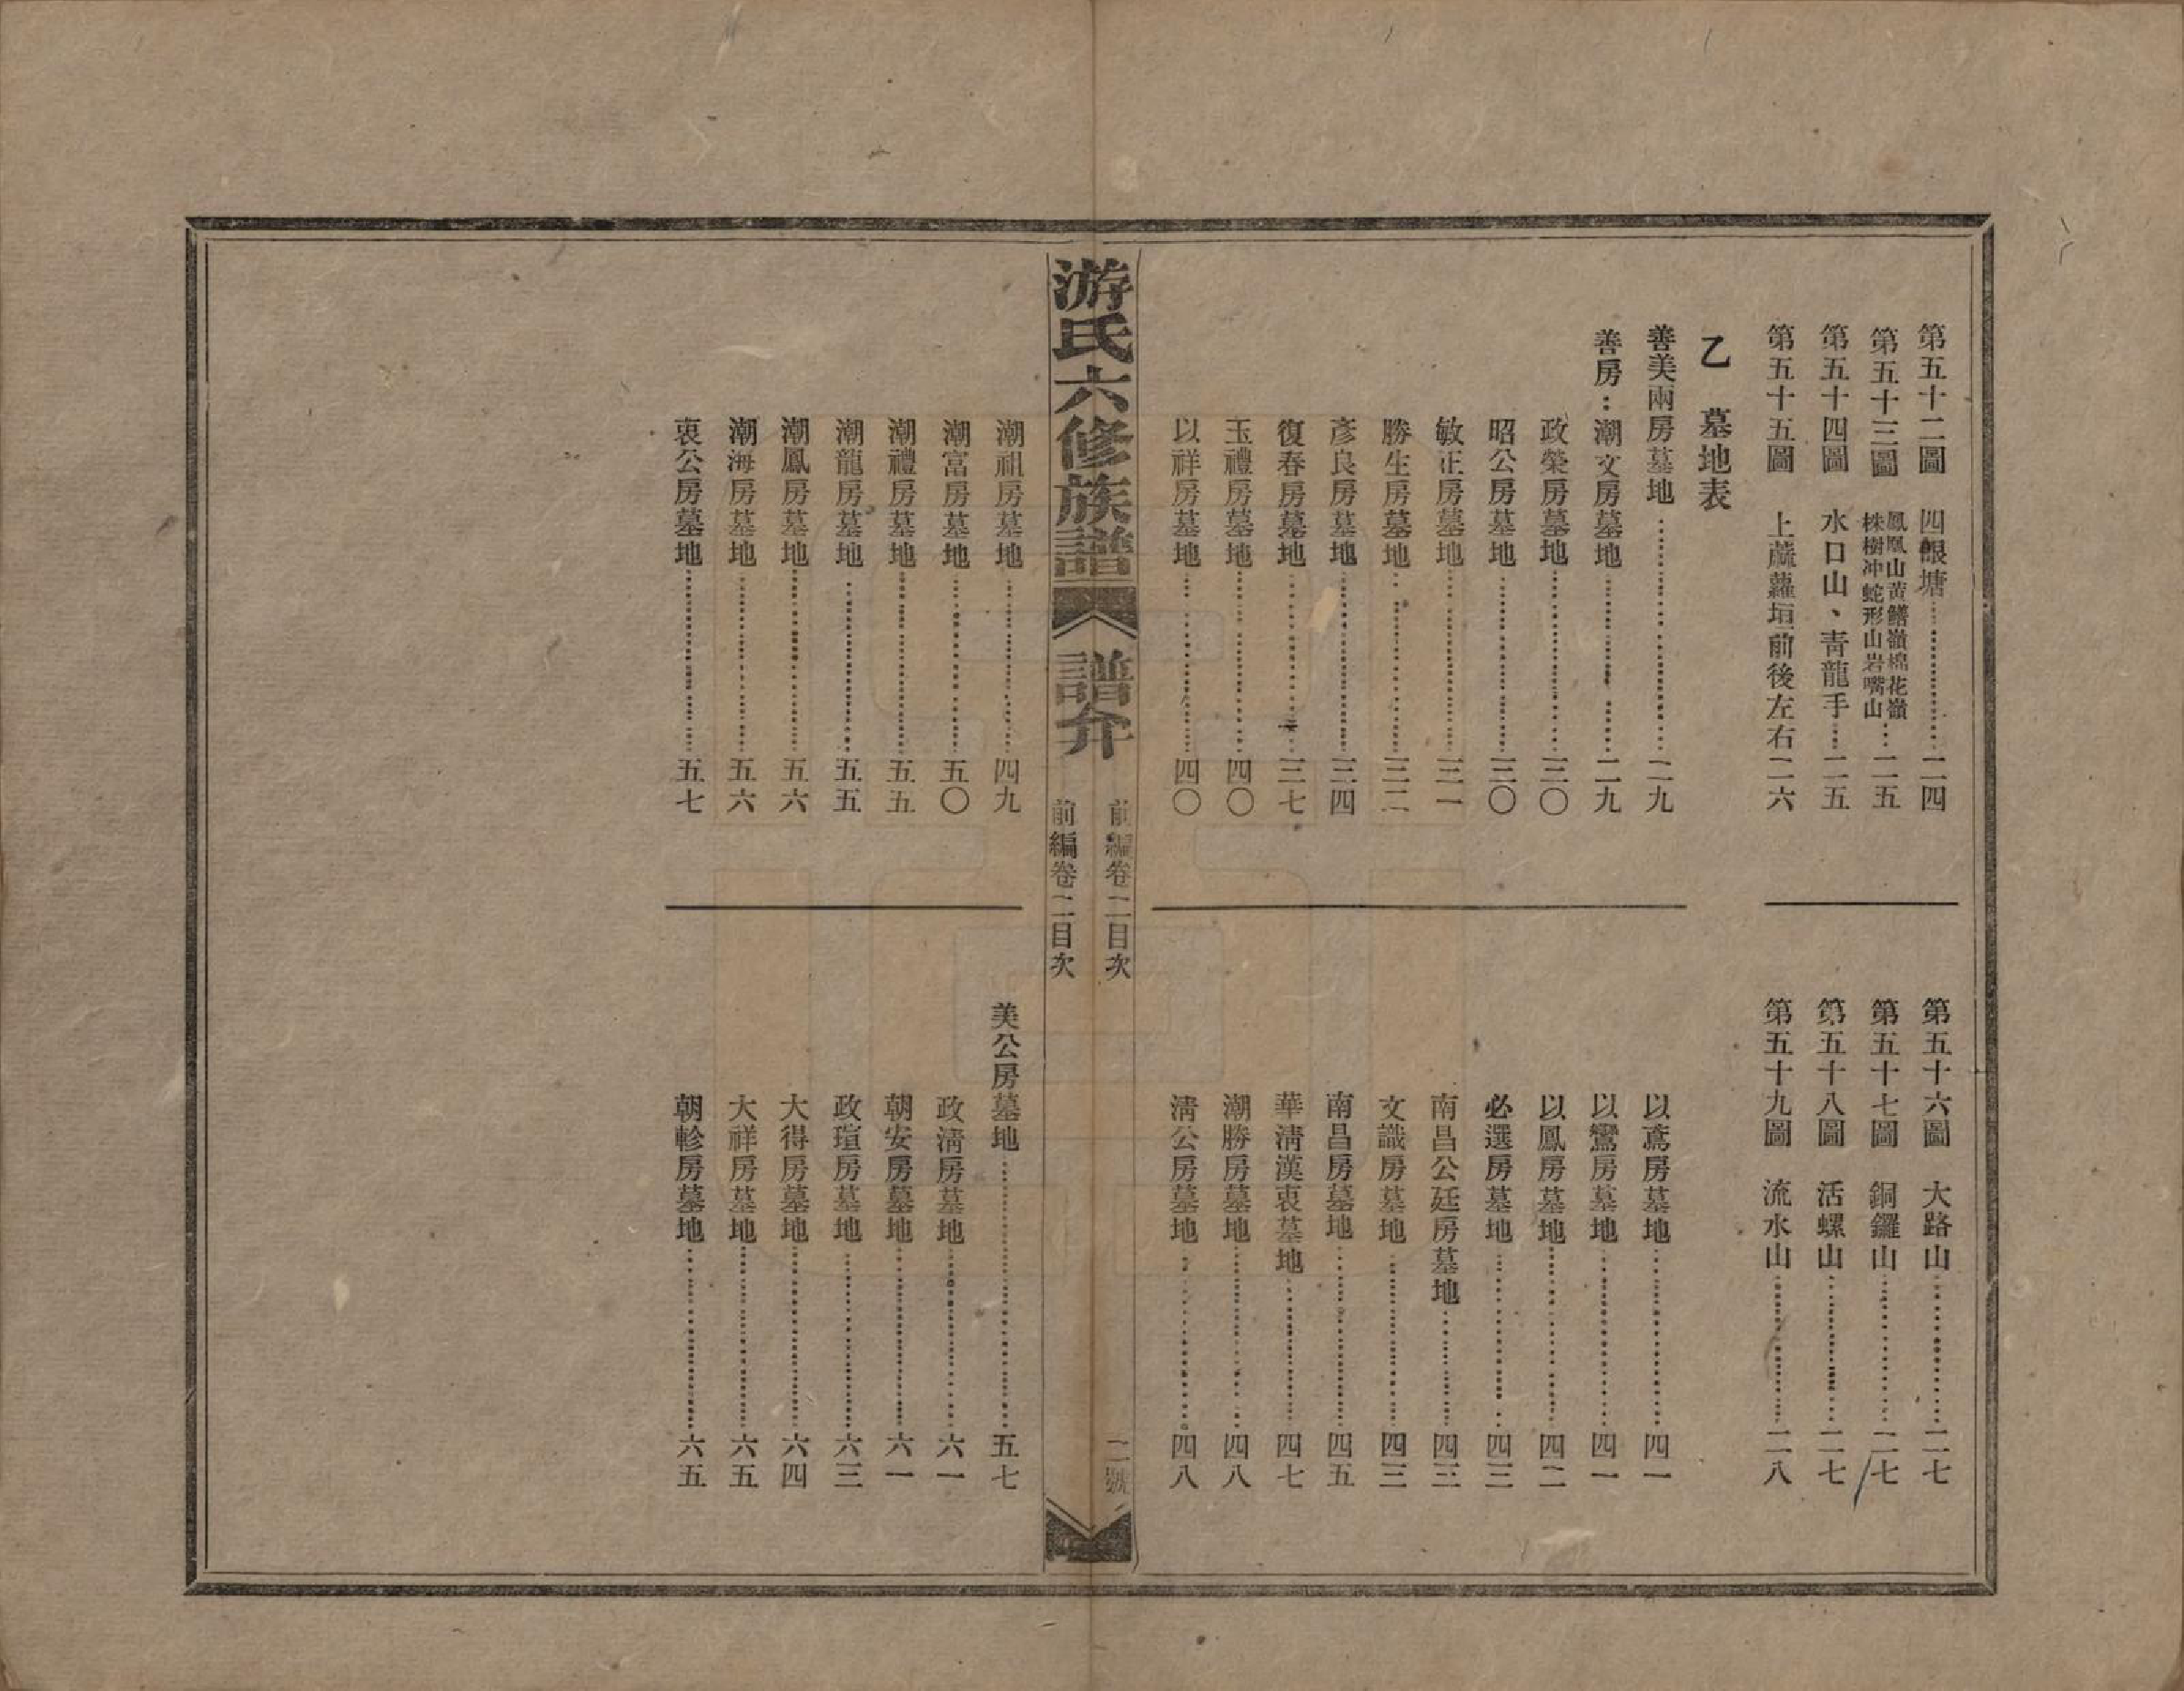 第五十二圖　四輥塘…………二四
第五十三圖　鳳凰山黃鱔嶺棉花嶺
株樹冲蛇形山岩嘴山…二五
第五十四圖　水口山、青龍手…二五
第五十五圖　上蘿垣前後左右二六
第五十六圖　大路山…………二七
第五十七圖　銅鑼山…………二七
第五十八圖　活螺山…………二七
第五十九圖　流水山…………二八
乙　墓地表
善美兩房墓地…………二九
善房：潮文房墓地…………二九
政榮房墓地…………三〇
昭公房墓地…………三〇
敏正房墓地…………三一
勝生房墓地…………三二
彥良房墓地…………三四
復春房墓地…………三七
玉禮房墓地…………四〇
以祥房墓地…………四〇
以鳶房墓地…………四一
以鸞房墓地…………四一
以鳳房墓地…………四二
必選房墓地…………四三
南昌公廷房墓地…………四三
文識房墓地…………四三
南昌房墓地…………四五
華清漢衷墓地…………四七
潮勝房墓地…………四八
清公房墓地…………四八
游氏六修族譜　譜弁
前編卷二目次　二號
前編卷二目次
潮祖房墓地…………四九
潮富房墓地…………五〇
潮禮房墓地…………五五
潮龍房墓地…………五五
潮鳳房墓地…………五六
潮海房墓地…………五六
衷公房墓地…………五七
美公房墓地…………五七
政清房墓地…………六一
朝安房墓地…………六一
政瑄房墓地…………六三
大得房墓地…………六四
大祥房墓地…………六五
朝軫房墓地…………六五